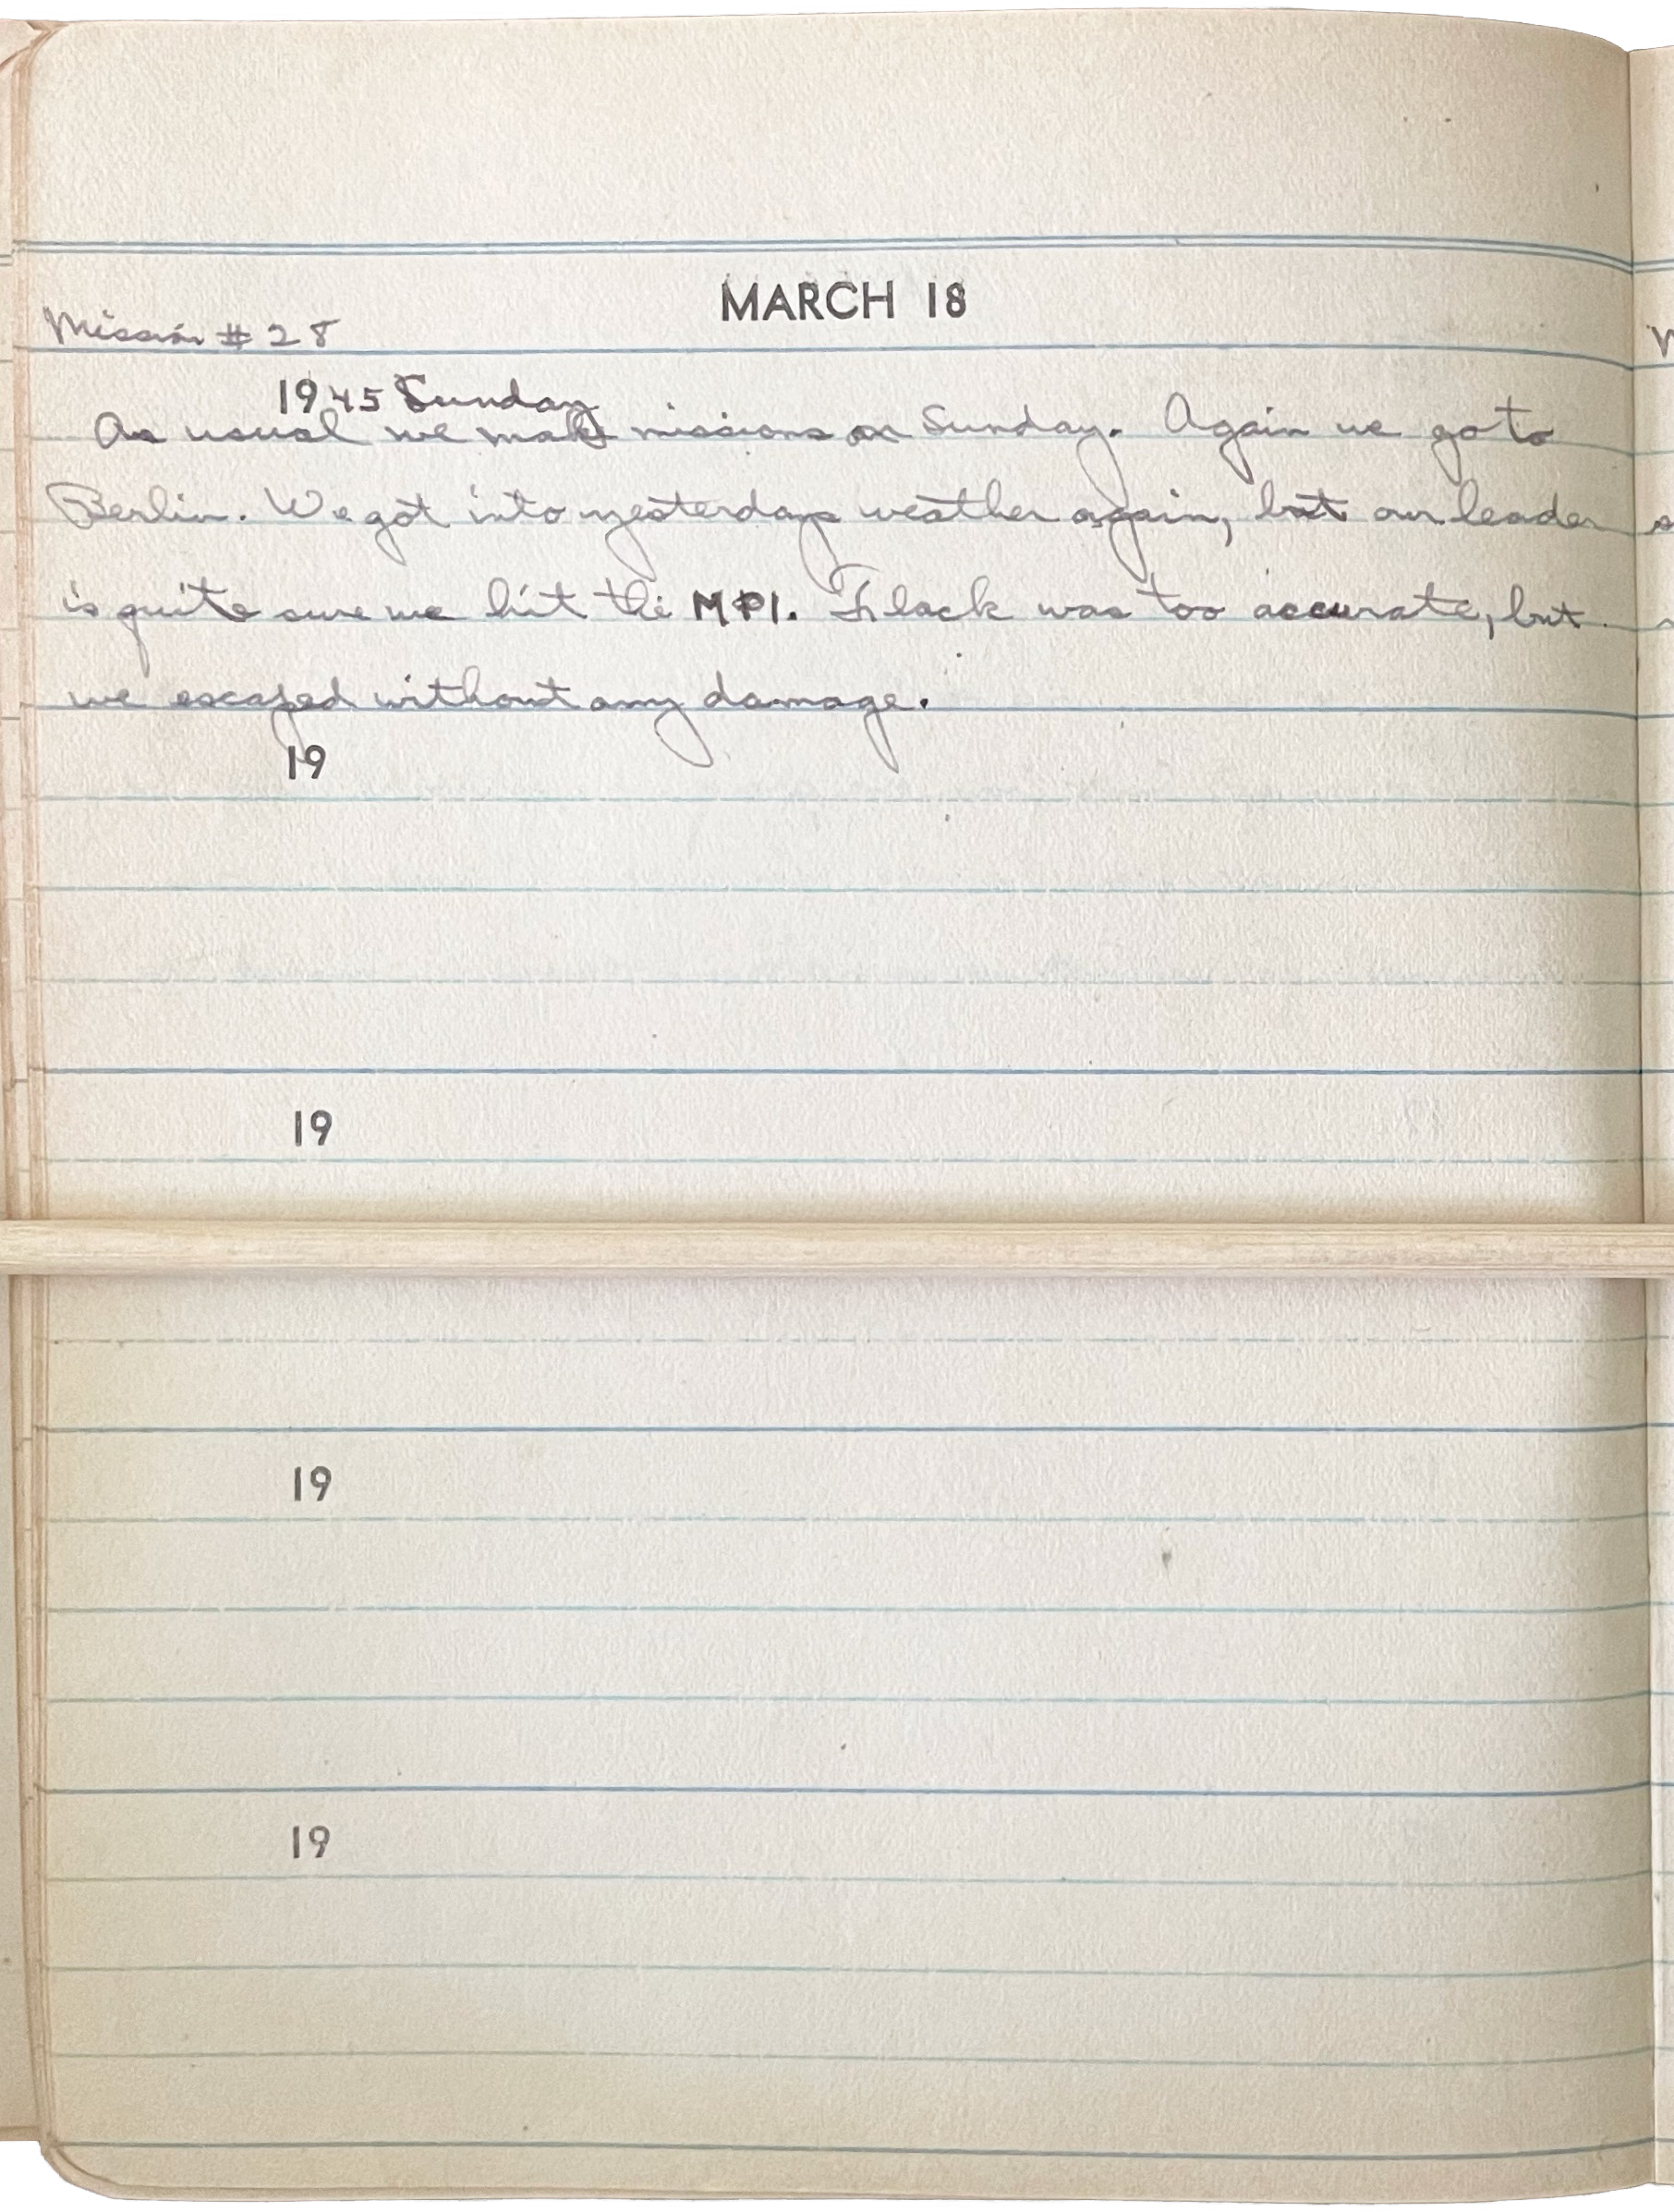 MARCH 18
Mission # 28
1945 Sunday
As usual we make missions on Sunday. Again we go to
Berlin. We got into yesterdays weather again, but our leader
is quite sure we hit the MPI. Flack was too accurate, but
we escaped without any damage.
19
19
19
19